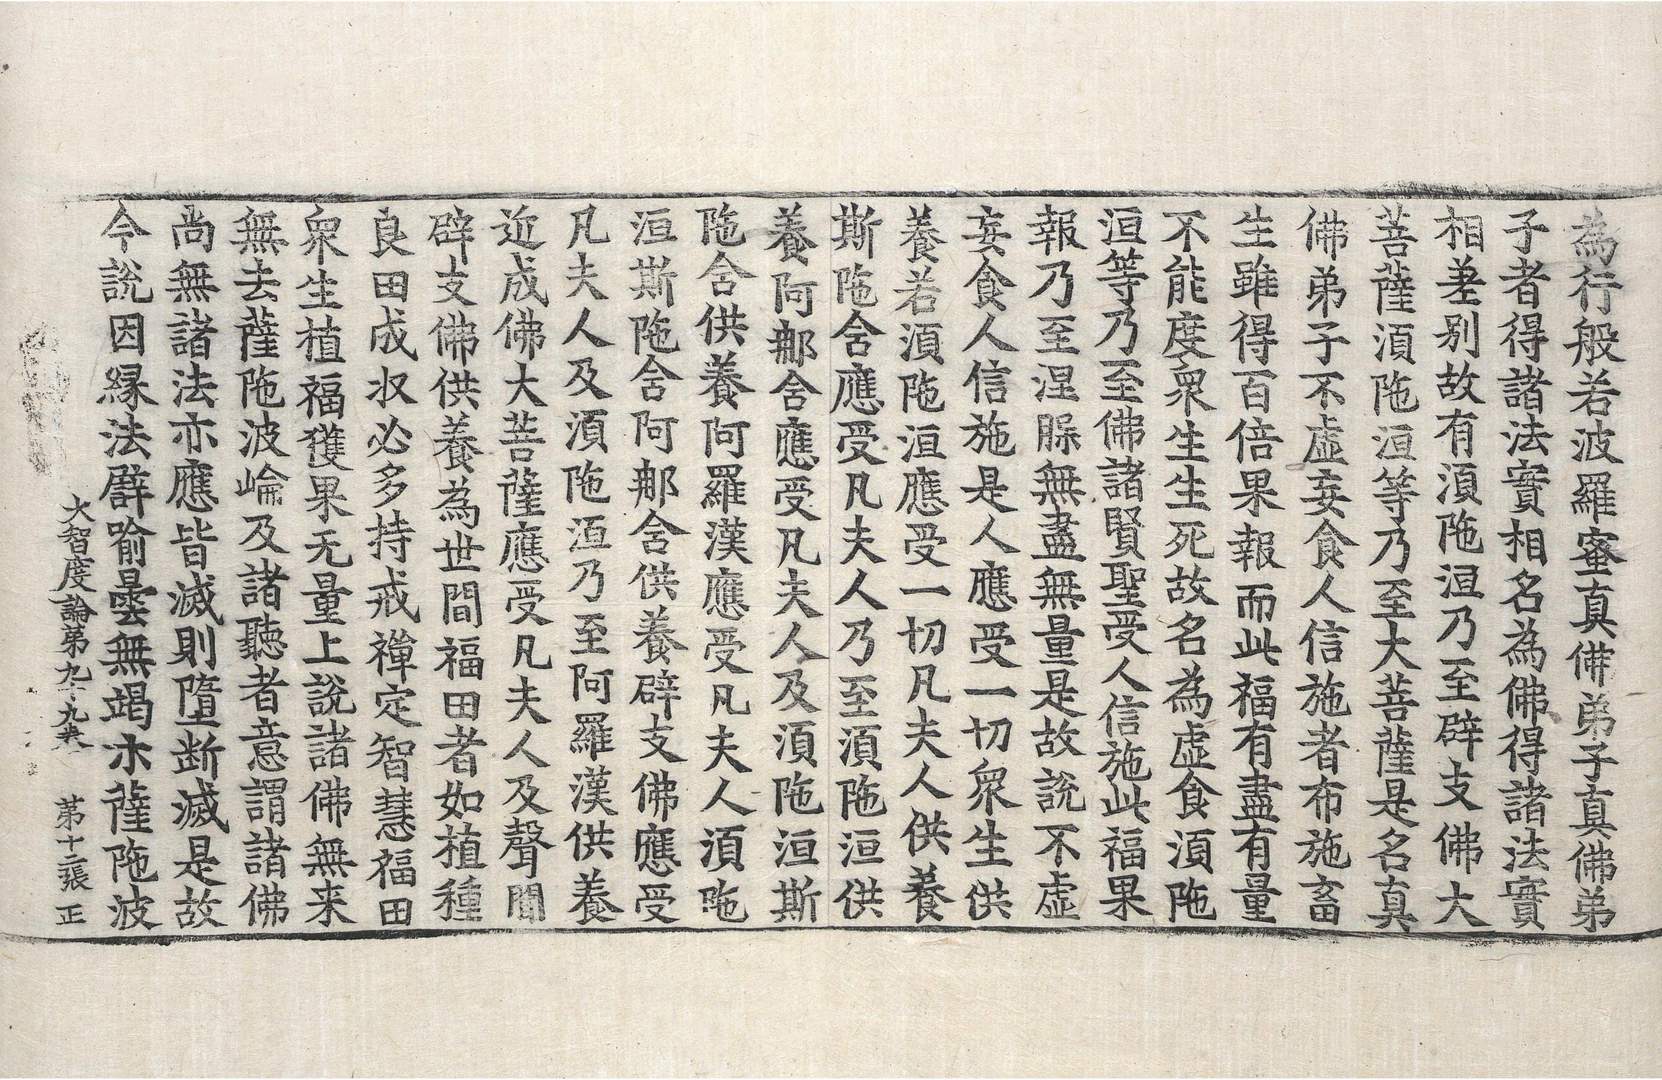 為行般若波羅蜜真佛弟子真佛弟
子者得諸法實相名為佛得諸法實
相差别故有湏陁洹乃至辟支佛大
菩薩湏陁洹等乃至大菩薩是名真
佛弟子不虛妄食人信施者布施畜
生雖得百倍果報而此福有盡有量
不能度衆生生死故名為虛食湏陁
洹等乃至佛諸賢聖受人信施此福果
報乃至涅槃無盡無量是故說不虛
妄食人信施是人應受一切衆生供
養若湏陁洹應受一切凡夫人供養
斯陁舍應受凡夫人乃至湏陁洹供
養阿那舍應受凡夫人及湏陁洹斯
陁舍供養阿羅漢應受凡夫人湏陁
洹斯陁舍阿那舍供養辟支佛應受
凡夫人及湏陁洹乃至阿羅漢供養
近成佛大菩薩應受凡夫人及聲聞
辟支佛供養為世間福田者如植種
良田成収必多持戒禪定智慧福田
衆生植福獲果无量上說諸佛無来
無去薩陁波崘及諸聽者意謂諸佛
尚無諸法亦應皆滅則墮断滅是故
今說因縁法譬喻曇無竭亦薩陁波
大智度論第九十九卷 第十二張 正